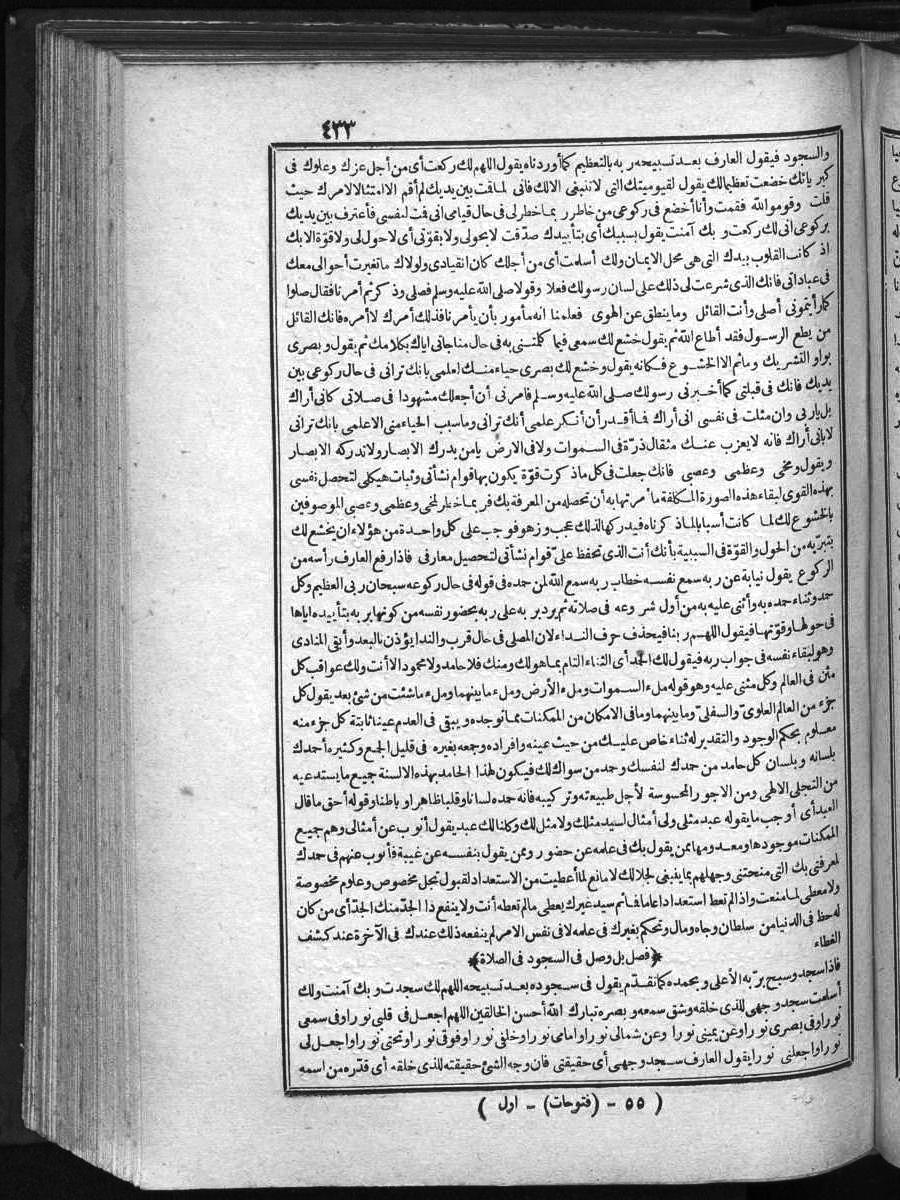 ٤٣٣
والسجود فيقول العارف بعد تسبيحه ربه بالتعظيم كما أوردناه يقول اللهم لك ركعت أى من أجل عزك وعلوك فى
كبريائك خضعت تعظيما لك يقول لقيوميتك التى لا تنبغى الا لك فانى لما قمت بين يديك لم أقم الا امتثالا لامرك حيث
قلت وقوموا لله فقمت وأنا أخضع فى ركوعى من خاطر ربما خطر لى فى حال قيامى انى قمت لنفسى فأعترف بين يديك
بركوعى انى لك ركعت وبك آمنت يقول بسببك أى بتأييدك صدّقت لا بحولى ولا بقوّتى أى لا حول لى ولا قوّة الا بك
اذ كانت القلوب بيدك التى هى محل الايمان ولك أسلمت أى من أجلك كان انقيادى ولولاك ما تغيرت أحوالى معك
فى عباداتى فانك الذى شرعت لى ذلك على لسان رسولك فعلا وقولا صلى الله عليه وسلم فصلى وذكر ثم أمرنا فقال صلوا
كما رأيتمونى أصلى وأنت القائل وما ينطق عن الهوى فعلمنا انه مأمور بأن يأمرنا فذلك أمرك لا أمره فانك القائل
من يطع الرسول فقد أطاع الله ثم يقول خشع لك سمعى فيما كلمتنى به فى حال مناجاتى اياك بكلامك ثم يقول وبصرى
بواو التشريك وما ثم الا الخشوع فكانه يقول وخشع لك بصرى حياء منك لعلمى بانك ترانى فى حال ركوعى بين
يديك فانك فى قبلتى كما أخبرنى رسولك صلى الله عليه وسلم فامرنى أن أجعلك مشهودا فى صلاتى كانى أراك
بل يا ربى وان مثلت فى نفسى انى أراك فما أقدر أن أنكر علمى أنك ترانى وما سبب الحياء منى الا علمى بانك ترانى
لا بانى أراك فانه لا يعزب عنك مثقال ذرّة فى السموات ولا فى الارض يا من يدرك الابصار ولا تدركه الابصار
ويقول ومخى وعظمى وعصبى فانك جعلت فى كل ما ذكرت قوّة يكون بها قوام نشأتى وثبات هيكلى لتحصل نفسى
بهذه القوى لبقاء هذه الصورة المكلفة ما أمرتها به أن تحصله من المعرفة بك فربما خطر لمخى وعظمى وعصبى الموصوفين
بالخشوع لك لما كانت أسبابا لما ذكرناه فيدركها لذلك عجب وزهو فوجب على كل واحدة من هؤلاء ان يخشع لك
بتبرّيه من الحول والقوّة فى السببية بأنك أنت الذى تحفظ علىّ قوام نشأتى لتحصيل معارفى فاذا رفع العارف رأسه من
الركوع يقول نيابة عن ربه سمع نفسه خطاب ربه سمع الله لمن حمده فى قوله فى حال ركوعه سبحان ربى العظيم وكل
حمد وثناء حمده به وأثنى عليه به من أول شروعه فى صلاته ثم يرد بربه على ربه بحضور نفسه من كونها بربه بتأييده اياها
فى حولها وقوّتها فيقول اللهم ربنا فيحذف حرف النداء لان المصلى فى حال قرب والندا يؤذن بالبعد وأبقى المنادى
وهو لبقاء نفسه فى جواب ربه فيقول لك الحمد أى الثناء التام بما هو لك ومنك فلا حامد ولا محمود الا أنت ولك عواقب كل
مثن فى العالم وكل مثنى عليه وهو قوله ملء السموات وملء الأرض وملء ما بينهما وملء ما شئت من شئ بعد يقول كل
جزء من العالم العلوىّ والسفلىّ وما بينهما وما فى الامكان من الممكنات مما توجده ويبقى فى العدم عينا ثابتة كل جزء منه
معلوم بحكم الوجود والتقدير له ثناء خاص عليك من حيث عينه وافراده وجمعه بغيره فى قليل الجمع وكثيره أحمدك
بلسانه وبلسان كل حامد من حمدك لنفسك وحمد من سواك لك فيكون لهذا الحامد بهذه الالسنة جميع ما يستدعيه
من التجلى الالهى ومن الاجور المحسوسة لأجل طبيعته وتركيبه فانه حمده لسانا وقلبا ظاهرا وباطنا وقوله أحق ما قال
العبد أى أوجب ما يقوله عبد مثلى ولى أمثال لسيد مثلك ولا مثل لك وكلنا لك عبد يقول أنوب عن أمثالى وهم جميع
الممكنات موجودها ومعدومها ممن يقول بك فى علمه عن حضور وممن يقول بنفسه عن غيبة فأنوب عنهم فى حمدك
لمعرفتى بك التى منحتنى وجهلهم بما ينبغى لجلالك لا مانع لما أعطيت من الاستعداد لقبول تجل مخصوص وعلوم مخصوصة
ولا معطى لما منعت واذا لم تعط استعدادا عاما فما ثم سيد غيرك يعطى ما لم تعطه أنت ولا ينفع ذا الجدّ منك الجدّ أى من كان
له حظ فى الدنيا من سلطان وجاه ومال وتحكم بغيرك فى علمه لا فى نفس الامر لم ينفعه ذلك عندك فى الآخرة عند كشف
الغطاء
﴿فصل بل وصل فى السجود فى الصلاة﴾
فاذا سجد وسبح بربه الأعلى وبحمده كما تقدّم يقول فى سجوده بعد تسبيحه اللهم لك سجدت وبك آمنت ولك
أسلمت سجد وجهى للذى خلقه وشق سمعه وبصره تبارك الله أحسن الخالقين اللهم اجعل فى قلبى نورا وفى سمعى
نورا وفى بصرى نورا وعن يمينى نورا وعن شمالى نورا وامامى نورا وخلفى نورا وفوقى نورا وتحتى نورا واجعل لى
نورا واجعلنى نورا يقول العارف سجد وجهى أى حقيقتى فان وجه الشئ حقيقته للذى خلقه أى قدّره من اسمه
( ٥٥ - (فتوحات) - اول )